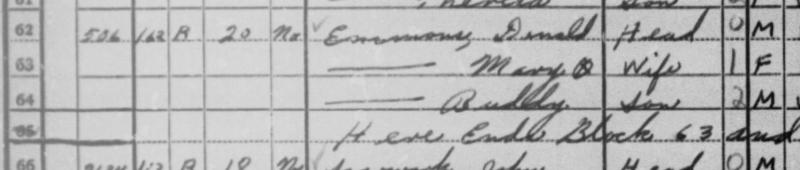 62 506 162 R 20 No Emmons, Donald Head 0 M
63 Mary Wife 1 F
64 Buddy Son 2 M
65 Here Ends Block 63 and
66 R 18 No Head 0 M